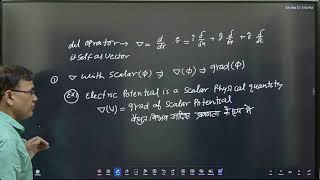 del oprator → ∇ = d/dr r̂ = î d/dx + ĵ d/dy + k̂ d/dz
itself as vector
① ∇ with scalar(ϕ) ⇒ ∇(ϕ) ⇒ grad(ϕ)
Ex① Electric Potential is a scalar Physical quantity
∇(V) = grad of scalar Potential